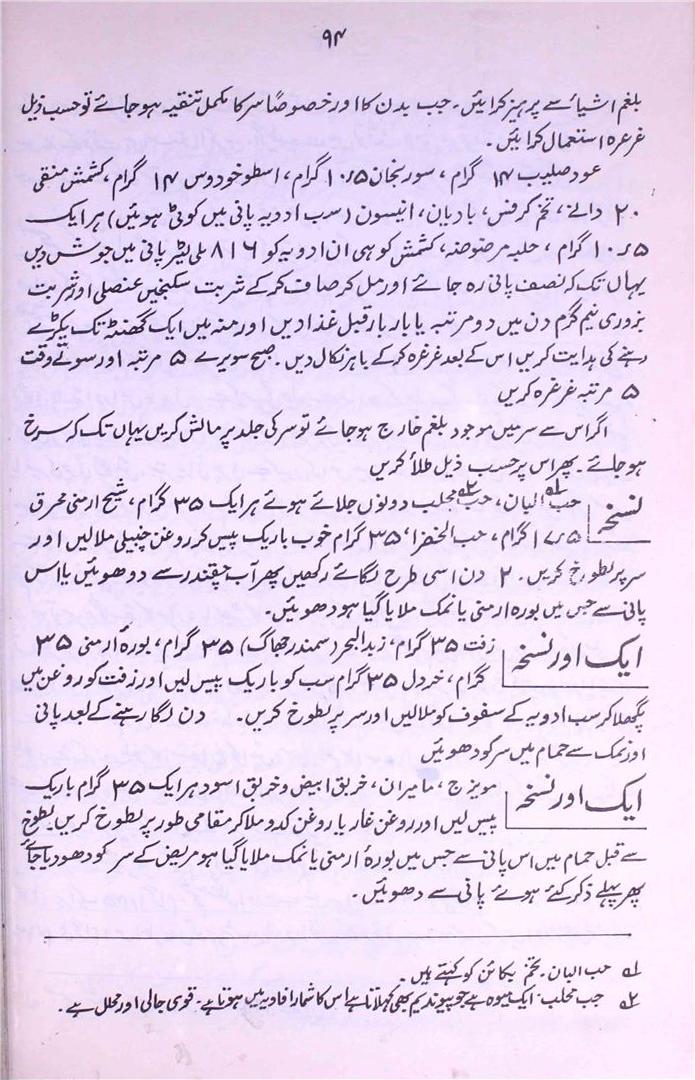 ۹۴
بلغم اشیاء سے پرہیز کرائیں۔ جب بدن کا اور خصوصاً سر کا مکمل تنقیہ ہو جائے تو حسب ذیل
غرغرہ استعمال کرائیں۔
عود صلیب ۱۴ گرام، سورنجان ۱۰٫۵ گرام، اسطوخودوس ۱۴ گرام، کشمش منقی
۲۰ دانے، تخم کرفس، بادیان، انیسون (سب ادویہ پانی میں کوٹی ہوئیں) ہر ایک
۱۰٫۵ گرام، حلبہ مرضوضہ، کشمش کوہی ان ادویہ کو ۸۱۶ ملی لیٹر پانی میں جوش دیں
یہاں تک کہ نصف پانی رہ جائے اور مل کر صاف کر کے شربت سکنجبین عنصلی اور شربت
بزوری نیم گرم دن میں دو مرتبہ یا بار بار قبل غذا دیں اور منہ میں ایک گھنٹہ تک پکڑے
رہنے کی ہدایت کریں اس کے بعد غرغرہ کر کے باہر نکال دیں۔ صبح سویرے ۵ مرتبہ اور سوتے وقت
۵ مرتبہ غرغرہ کریں
اگر اس سے سر میں موجود بلغم خارج ہو جائے تو سر کی جلد پر مالش کریں یہاں تک کہ سرخ
ہو جائے۔ پھر اس پر حسب ذیل طلاٗ کریں
نسخہ حب البان۱؎، حب محلب۲؎ دونوں جلائے ہوئے ہر ایک ۳۵ گرام، شیح ارمنی محرق
۱۷٫۵ گرام، حب الخضراٗ ۳۵ گرام خوب باریک پیس کر روغن چنبیلی ملالیں اور
سر پر لطوخ کریں۔ ۲ دن اسی طرح لگائے رکھیں پھر آب چقندر سے دوھوئیں یا اس
پانی سے جس میں بورہ ارمنی یا نمک ملایا گیا ہو دھوئیں۔
ایک اور نسخہ زفت ۳۵ گرام، زبد البحر (سمندر جھاگ) ۳۵ گرام، بورہ آرمنی ۳۵
گرام، خردل ۳۵ گرام سب کو باریک پیس لیں اور زفت کو روغن میں
پگھلا کر سب ادویہ کے سفوف کو ملالیں اور سر پر لطوخ کریں۔ دن لگا رہنے کے بعد پانی
اور نمک سے حمام میں سر کو دھوئیں
ایک اور نسخہ مویزج، مامیران، خربق ابیض و خربق اسود ہر ایک ۳۵ گرام باریک
پیس لیں اور روغن غار یا روغن کدو ملا کر مقامی طور پر لطوخ کریں۔ لطوخ
سے قبل حمام میں اس پانی سے جس میں بورۂ ارمنی یا نمک ملایا گیا ہو مریض کے سر کو دھو دیا جائے
پھر پہلے ذکر کئے ہوئے پانی سے دھوئیں۔
۱؎ حب البان۔ تخم بکائن کو کہتے ہیں۔
۲؎ حب محلب۔ ایک میوہ ہے جو پیوندیم بھی کہلاتا ہے اس کا شمار افاویہ میں ہوتا ہے۔ قوی جالی اور محلل ہے۔